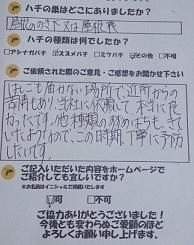 ハチの巣はどこにありましたか?
屋根のあき下又は屋根裏
ハチの種類は何でしたか?
アシナガバチ スズメバチ ミツバチ その他 不明
ご依頼された際のご意見・ご感想をお聞かせ下さい
はしごも届かない場所で近所からの
苦情もあり、当社に依頼して本当に良
かったです。他種類の
この時期、丁寧に予防
したいです。
ご記入いただいた内容をホームページで
ご紹介しても宜しいですか?
※お名前はイニシャルで掲載いたします
可 不可
ご協力ありがとうございました!
今後とも変わらぬご愛顧のほど
よろしくお願い申し上げます。